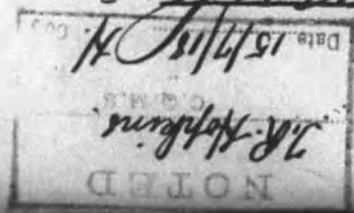 NOTED
J.R. Hopkins.
C.Q.M.S.
Date 15/7/18